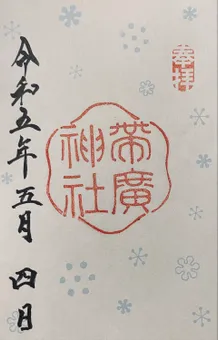 奉拝
帯廣
神社
令和五年五月四日